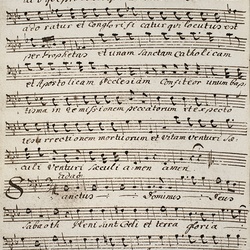 oratur et Conglorifi catur qui locutus est
per Prophetas et unam Sanctam Catholicam
et Apostolicam Ecclesiam Confiteor unum bap
tisma in remissionem peccatorum et expecto
resurrectionem mortuorum et Vitam Venturi Sæ
culi Venturi Sæculi amen amen
Sanctus Dominus Deus
Sabaoth Pleni sunt Cœli et terra gloria